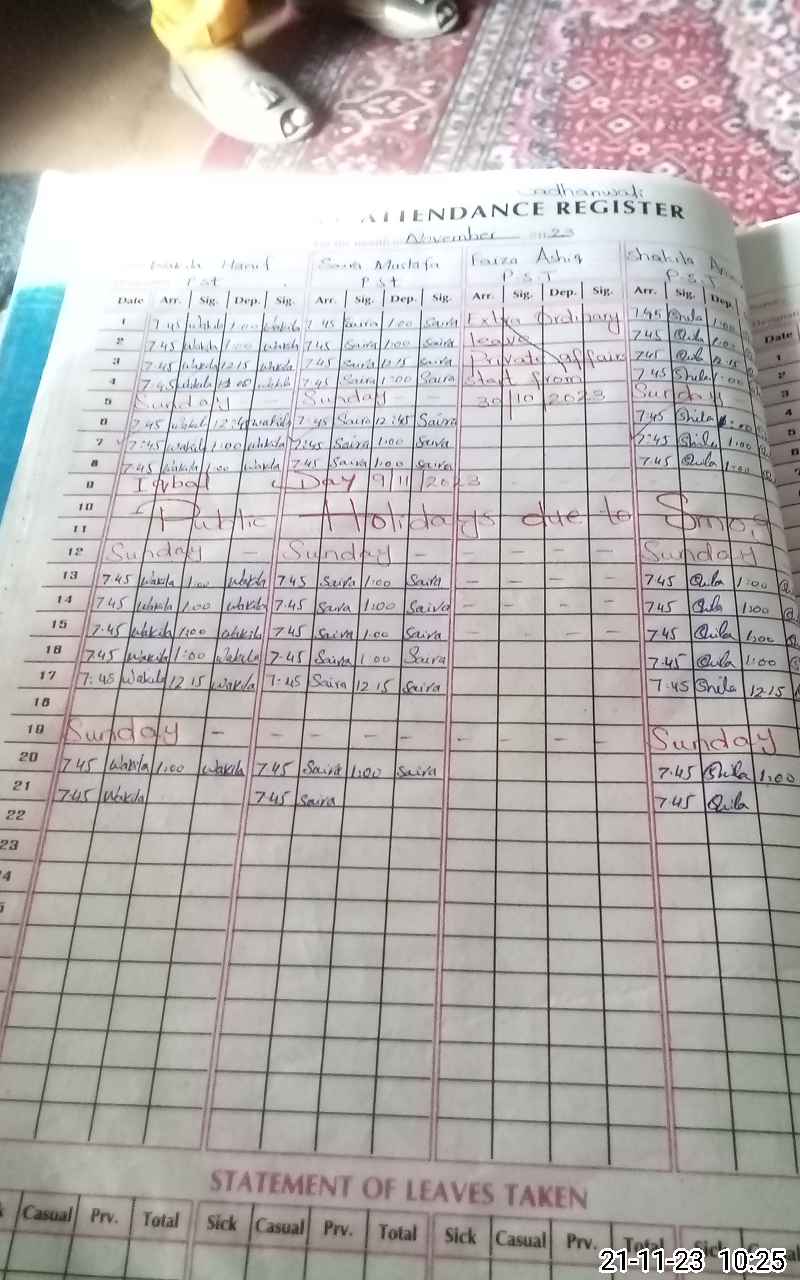 ATTENDANCE REGISTER
November 23
Wakila Hanif Saira Mustafa Faiza Ashiq Shakila
P.S.T P.S.T P.S.T P.S.T
Date Arr. Sig. Dep. Sig. Arr. Sig. Dep. Sig. Arr. Sig. Dep. Sig. Arr. Sig. Dep. Date
1 7 45 Wakila 1:00 Wakila 7 45 Saira 1:00 Saira Extra Ordinary 7.45 1:00
2 7 45 Wakila 1:00 Wakila 7.45 Saira 1:00 Saira leave 7.45 1:00
3 7 45 Wakila 12 15 Wakila 7.45 Saira 12 15 Saira Private affair 7.45 12 15
4 7.45 Wakila Wakila 7.45 Saira 1:00 Saira start from 7.45 1:00
5 Sunday - Sunday - 30/10/2023 Sunday
6 7 45 Wakila 12:45 Wakila 7:45 Saira 12:45 Saira 7.45
7 7:45 Wakila 1:00 Wakila 7:45 Saira 1:00 Saira 7:45 1:00
8 7.45 Wakila 1:00 Wakila 7.45 Saira 1:00 Saira 7.45 1:00
9 Iqbal Day 9/11/2023
10 Public Holidays due to
11
12 Sunday - Sunday - - - - - Sunday
13 7.45 Wakila 1:00 Wakila 7.45 Saira 1:00 Saira - - - - 7.45 1:00
14 7.45 Wakila 1:00 Wakila 7.45 Saira 1:00 Saira - - - - 7.45 1:00
15 7.45 Wakila 1:00 Wakila 7.45 Saira 1.00 Saira - - - - 7.45 1:00
16 7.45 Wakila 1:00 Wakila 7.45 Saira 1 00 Saira 7.45 1:00
17 7:45 Wakila 12 15 Wakila 7.45 Saira 12 15 Saira 7.45 12 15
18
19 Sunday - - - - - - - - - Sunday
20 7 45 Wakila 1:00 Wakila 7 45 Saira 1:00 Saira 7.45 1:00
21 7.45 Wakila 7.45 Saira 7.45
22
23
4
5
STATEMENT OF LEAVES TAKEN
Casual Prv. Total Sick Casual Prv. Total Sick Casual Prv. Total Sick
21-11-23 10:25